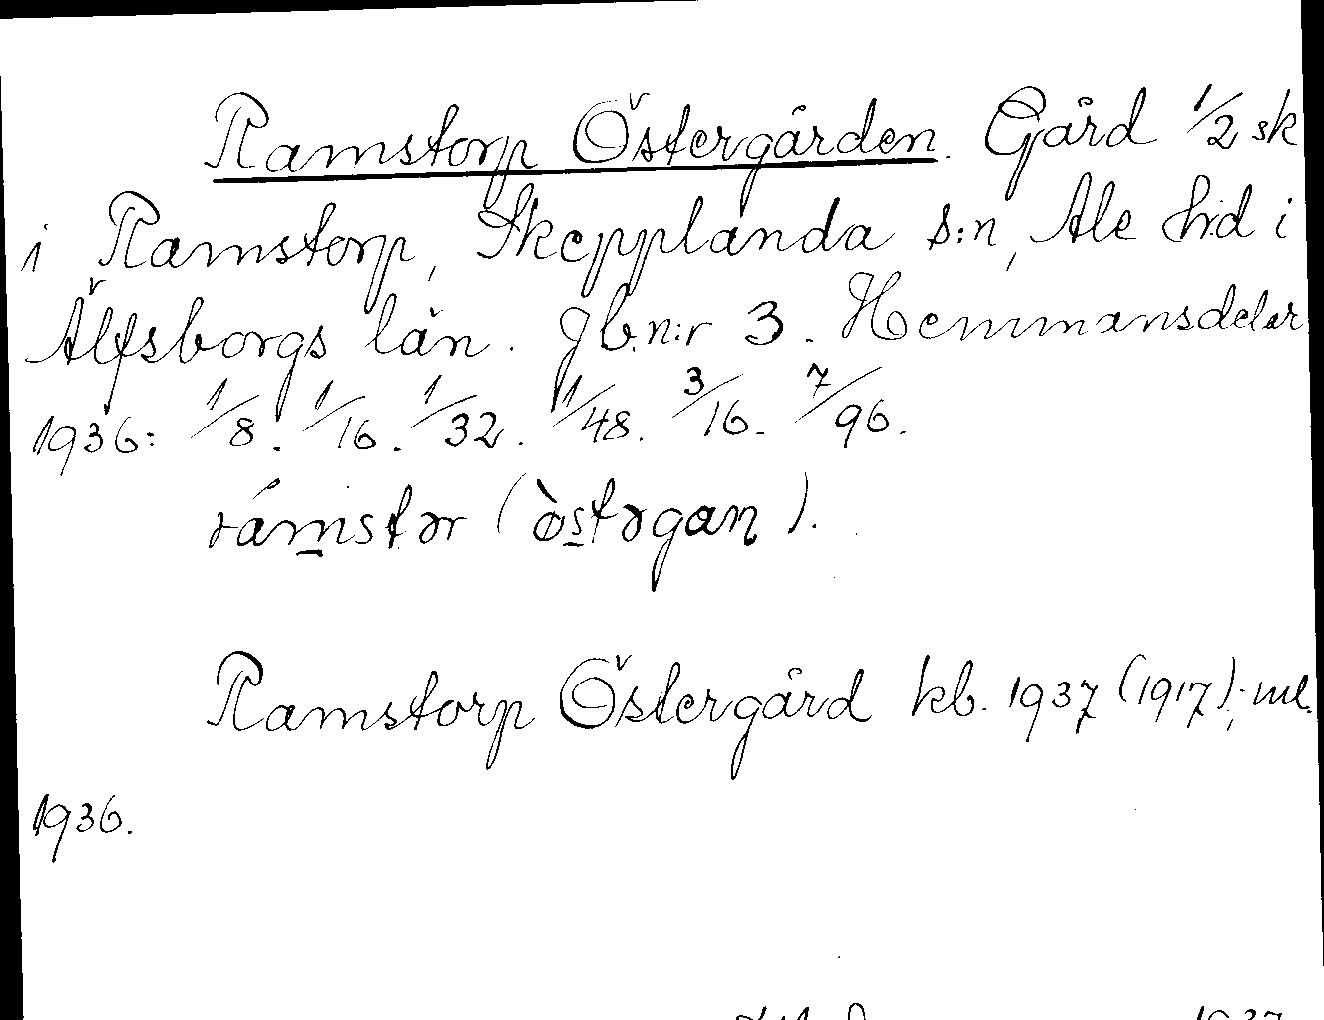 Ramstorp Östergården. Gård 1/2 sk
i Ramstorp, Skepplanda s:n, Ale hd i
Älfsborgs län. Jb.n:r 3. Hemmansdelar
1936: 1/8. 1/16. 1/32. 1/48. 3/16. 7/96.
rám̲stər (òs̲təgaṉ).
Ramstorp Östergård kb. 1937 (1917); ml.
1936.
1937